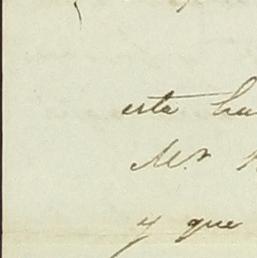 esta
Mr.
y que